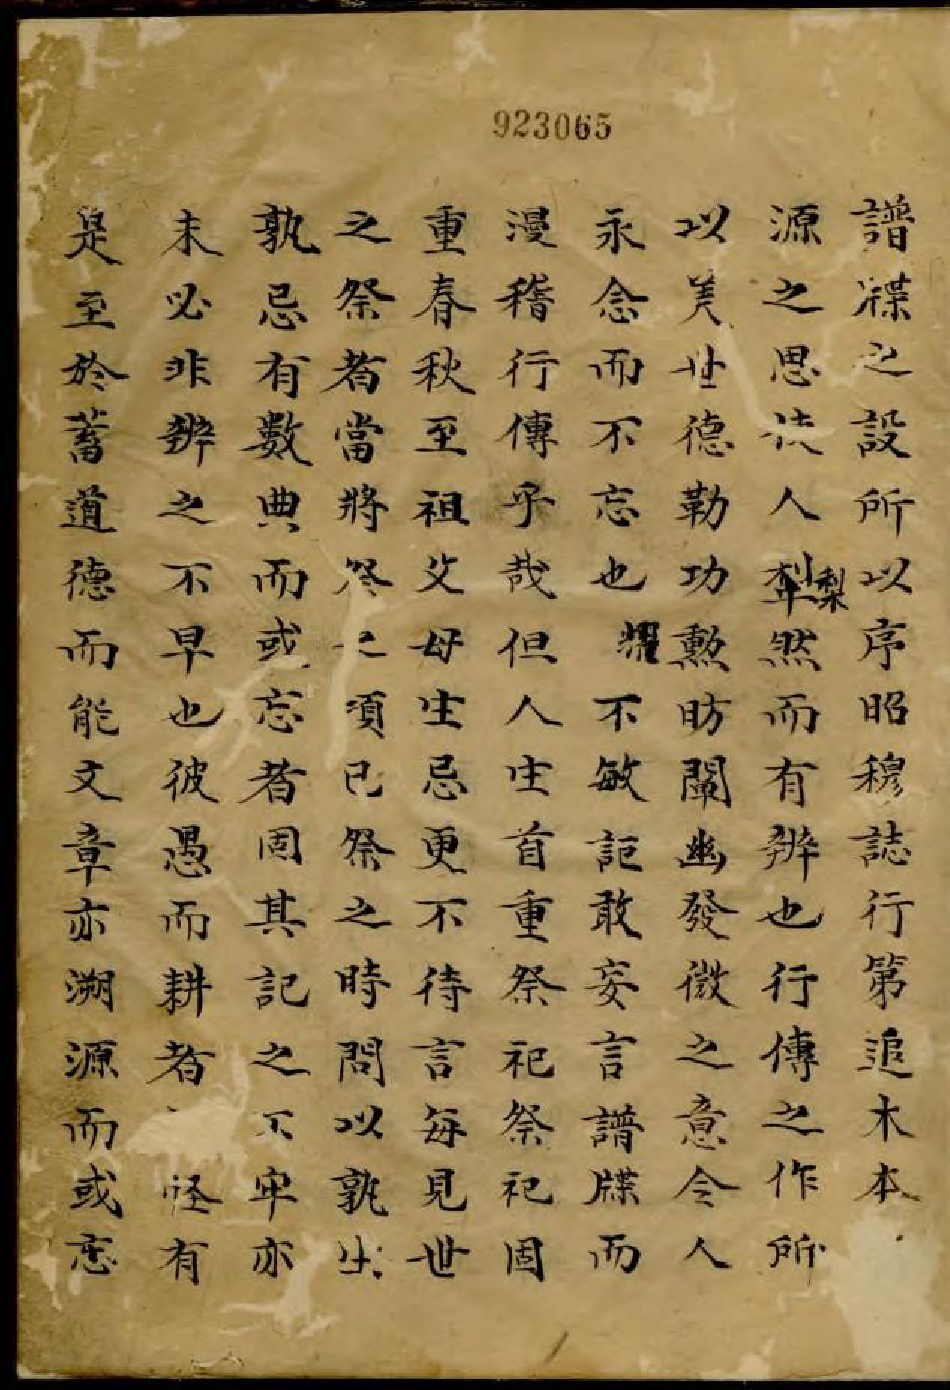 923065
譜牒之設所以序昭穆誌行第追木本
源之思使人犂梨然而有辨也行傳之作所
以美世德勒功勲昉闡幽發微之意令人
永念而不忘也耀不敏詎敢妄言譜牒而
漫稽行傳乎哉但人生首重祭祀祭祀固
重春秋至祖父母生忌更不待言每見世
之祭者當將祭之須已祭之時問以孰生
孰忌有數典而或忘者固其記之不牢亦
未必非辦之不早也彼愚而耕者怪有
是至於蓄道德而能文章亦溯源而或忘